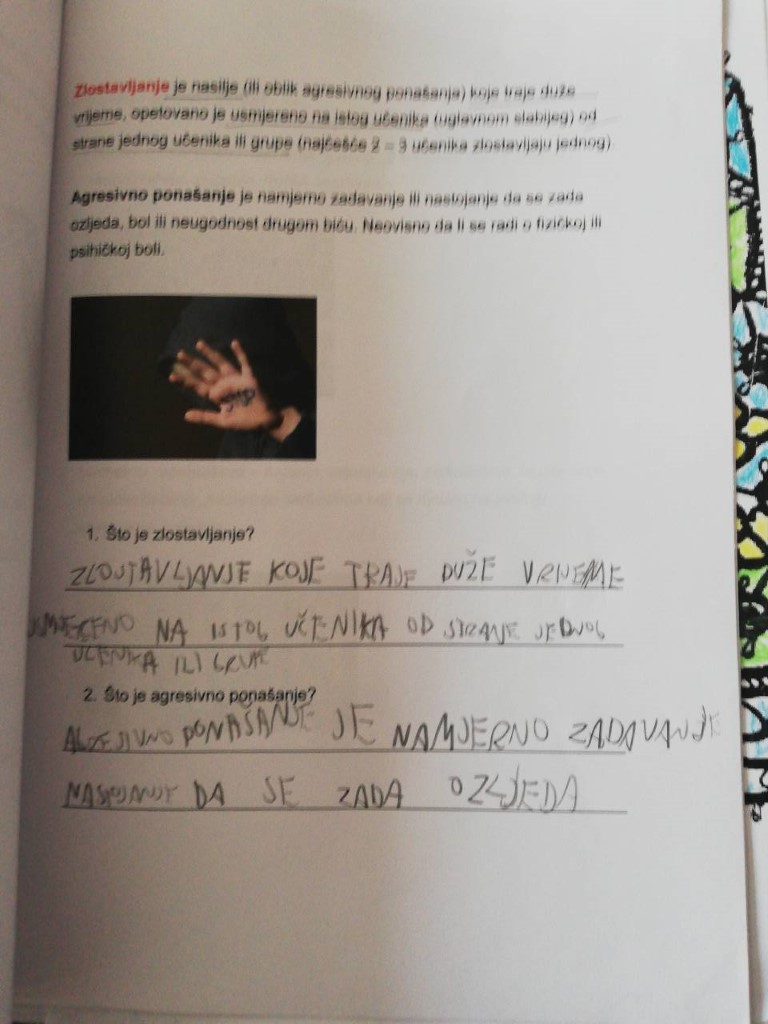 Zlostavljanje je nasilje (ili oblik agresivnog ponašanja) koje traje duže
vrijeme, opetovano je usmjereno na istog učenika (uglavnom slabijeg) od
strane jednog učenika ili grupe (najčešće 2 – 3 učenika zlostavljaju jednog)
Agresivno ponašanje je namjerno zadavanje ili nastojanje da se zada
ozljeda, bol ili neugodnost drugom biću. Neovisno da li se radi o fizičkoj ili
psihičkoj boli.
STOP
1. Što je zlostavljanje?
ZLOSTAVLJANJE KOJE TRAJE DUŽE
NA ISTOG UČENIKA OD STRANE JEDNOG
UČENIKA ILI
2. Što je agresivno ponašanje?
PONAŠANJE JE NAMJERNO ZADAVANJE
DA SE ZADA OZLJEDA